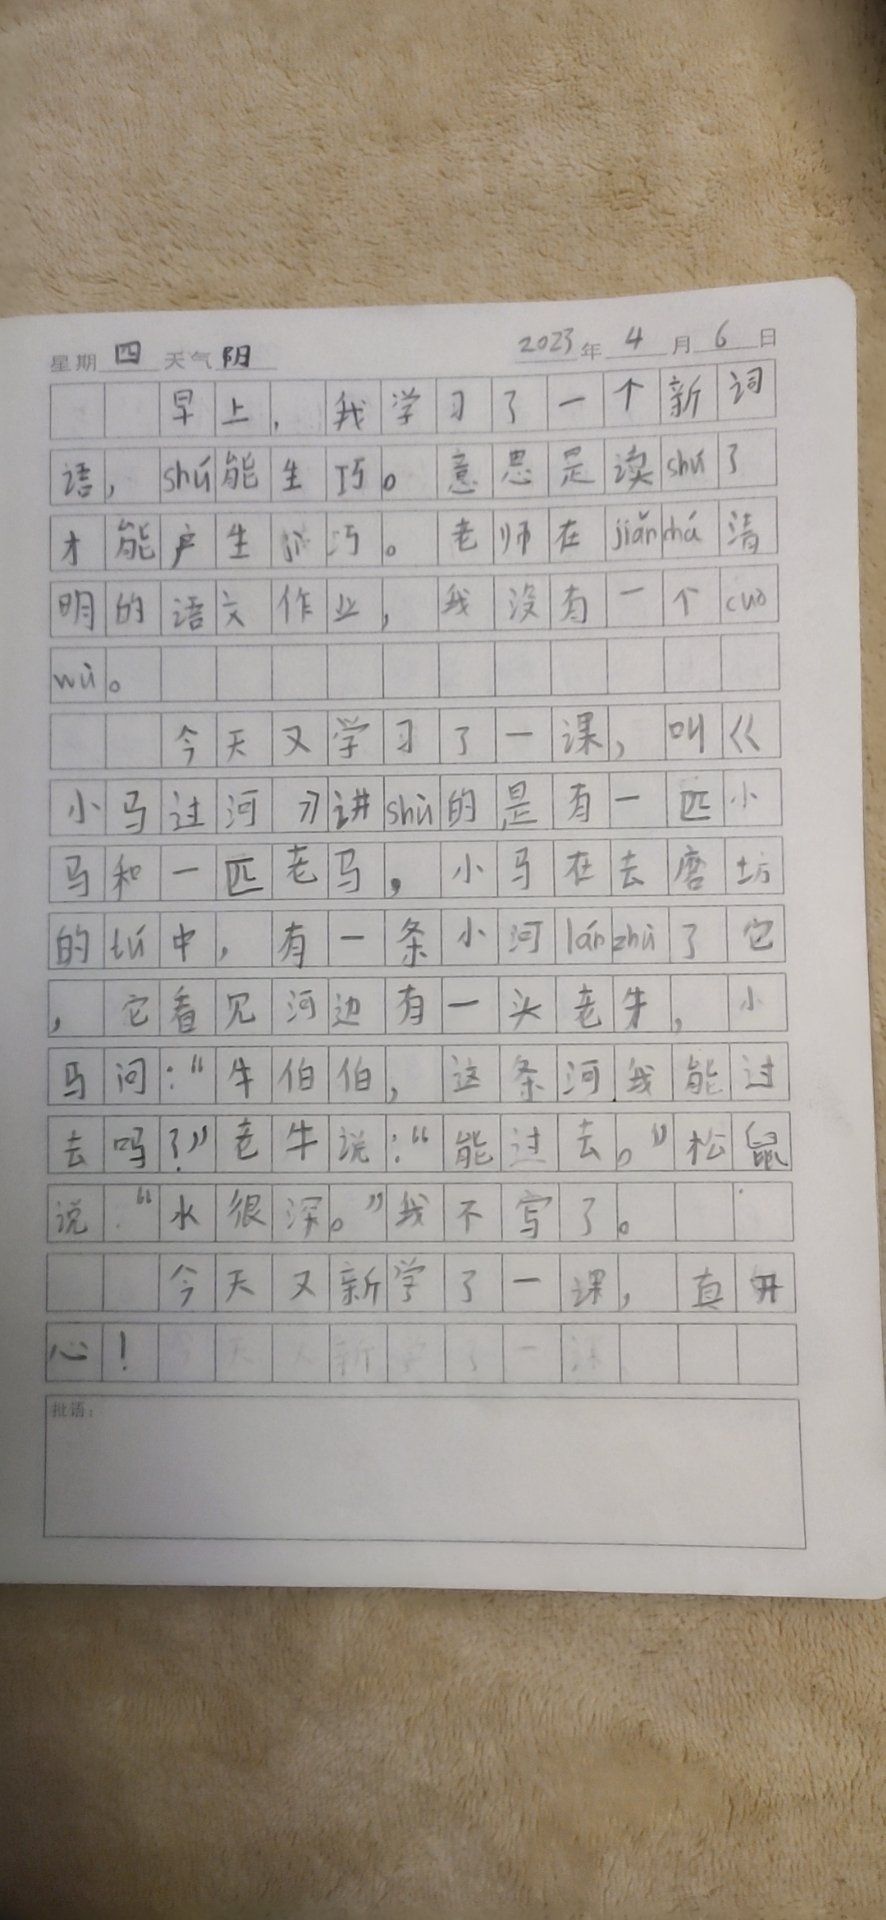 星期 四 天气 阴 2023年 4 月 6 日
早上，我学习了一个新词
语，shú能生巧。意思是读shú了
才能产生 巧。老师在jiǎnchá清
明的语文作业，我没有一个cuò
wù。
今天又学习了一课，叫《
小马过河》讲shù的是有一匹小
马和一匹老马，小马在去磨坊
的tú中，有一条小河lánzhù了它
，它看见河边有一头老牛，小
马问：“牛伯伯，这条河我能过
去吗？”老牛说：“能过去。”松鼠
说：“水很深。”我不写了。
今天又新学了一课，真开
心！
批语：